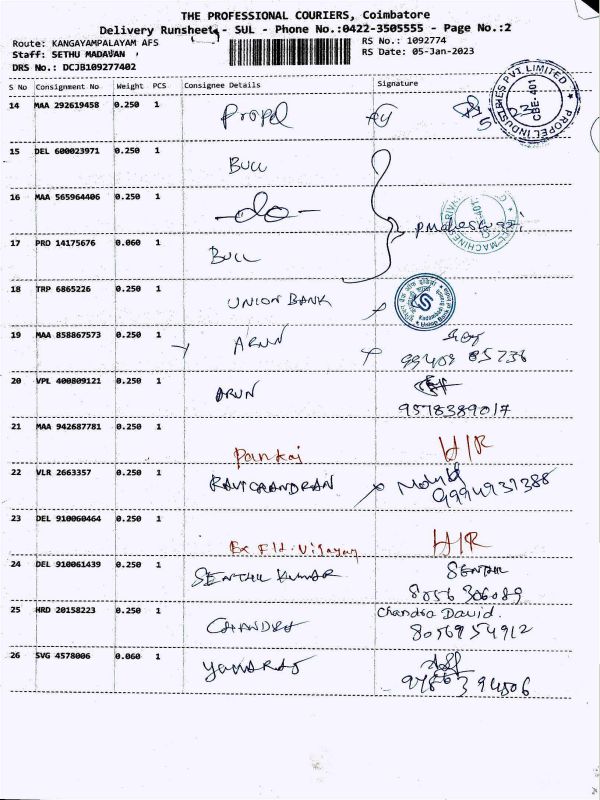 THE PROFESSIONAL COURIERS, Coimbatore
Delivery Runsheet - SUL - Phone No.:0422-3505555 - Page No.:2
Route: KANGAYAMPALAYAM AFS
RS No.: 1092774
Staff: SETHU MADAVAN
RS Date: 05-Jan-2023
DRS No.: DCJB109277402
S No Consignment No Weight PCS Consignee Details Signature
14 MAA 292619458 0.250 1 Propel
PROPEL INDUSTRIES PVT. LIMITED CBE-401
15 DEL 600023971 0.250 1 BULL
16 MAA 565964406 0.250 1 -do-
17 PRO 14175676 0.060 1 BULL
18 TRP 6865226 0.250 1 UNION BANK
19 MAA 858867573 0.250 1 ARUN
99409 85736
20 VPL 400809121 0.250 1 ARUN
9578389017
21 MAA 942687781 0.250 1 Pankaj H/R
22 VLR 2663357 0.250 1 RAVICHANDRAN
9994931388
23 DEL 910060464 0.250 1 Ex Fld. Vijayan H/R
24 DEL 910061439 0.250 1 SENTHIL KUMAR SENTHIL
8056306089
25 HRD 20158223 0.250 1 CHANDRA Chandra David.
8056954912
26 SVG 4578006 0.060 1 YUVARAJ